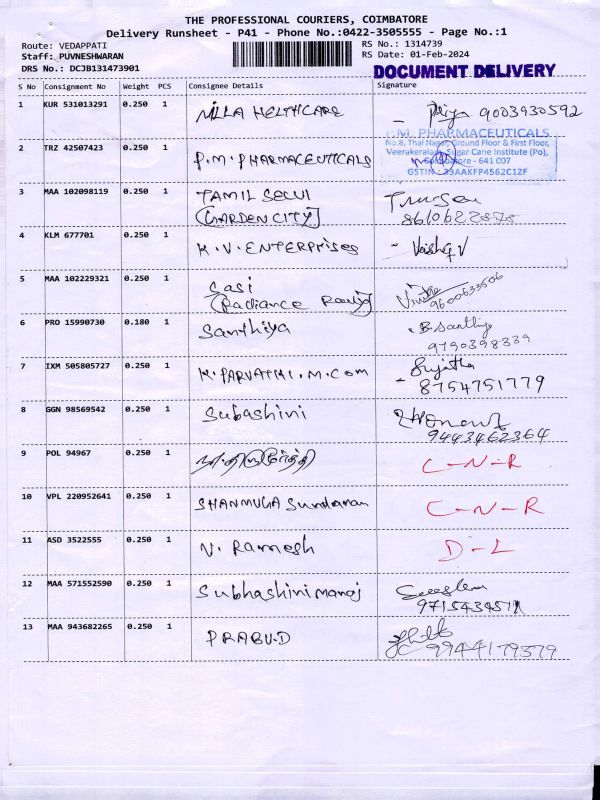 THE PROFESSIONAL COURIERS, COIMBATORE
Delivery Runsheet - P41 - Phone No.:0422-3505555 - Page No.:1
Route: VEDAPPATI
Staff: PUVNESHWARAN
DRS No.: DCJB131473901
RS No.: 1314739
RS Date: 01-Feb-2024
DOCUMENT DELIVERY
S No Consignment No Weight PCS Consignee Details Signature
1 KUR 531013291 0.250 1 NILLA HELTHCARE - Priya 9003930592
2 TRZ 42507423 0.250 1 P.M. PHARMACEUTICALS
P.M. PHARMACEUTICALS
No.8, Thai Nagar, Ground Floor & First Floor,
Veerakeralam, Sugar Cane Institute (Po),
Coimbatore - 641 007
GSTIN : 33AAKFP4562C1ZF
3 MAA 102098119 0.250 1 TAMIL SELVI
(GARDEN CITY)
4 KLM 677701 0.250 1 K.V. ENTERPRISES
5 MAA 102229321 0.250 1 Sasi
(Radiance Rouly) 9600633506
6 PRO 15990730 0.180 1 Santhiya B. Santhiy
9790398339
7 IXM 505805727 0.250 1 K. PARVATHI. M.com - Sujatha
8754751779
8 GGN 98569542 0.250 1 Subashini
9443462364
9 POL 94967 0.250 1 C-N-R
10 VPL 220952641 0.250 1 SHANMUGA Sundaram C-N-R
11 ASD 3522555 0.250 1 N. Ramesh D-L
12 MAA 571552590 0.250 1 Subhashini Manoj
13 MAA 943682265 0.250 1 PRABU.D
9944179379